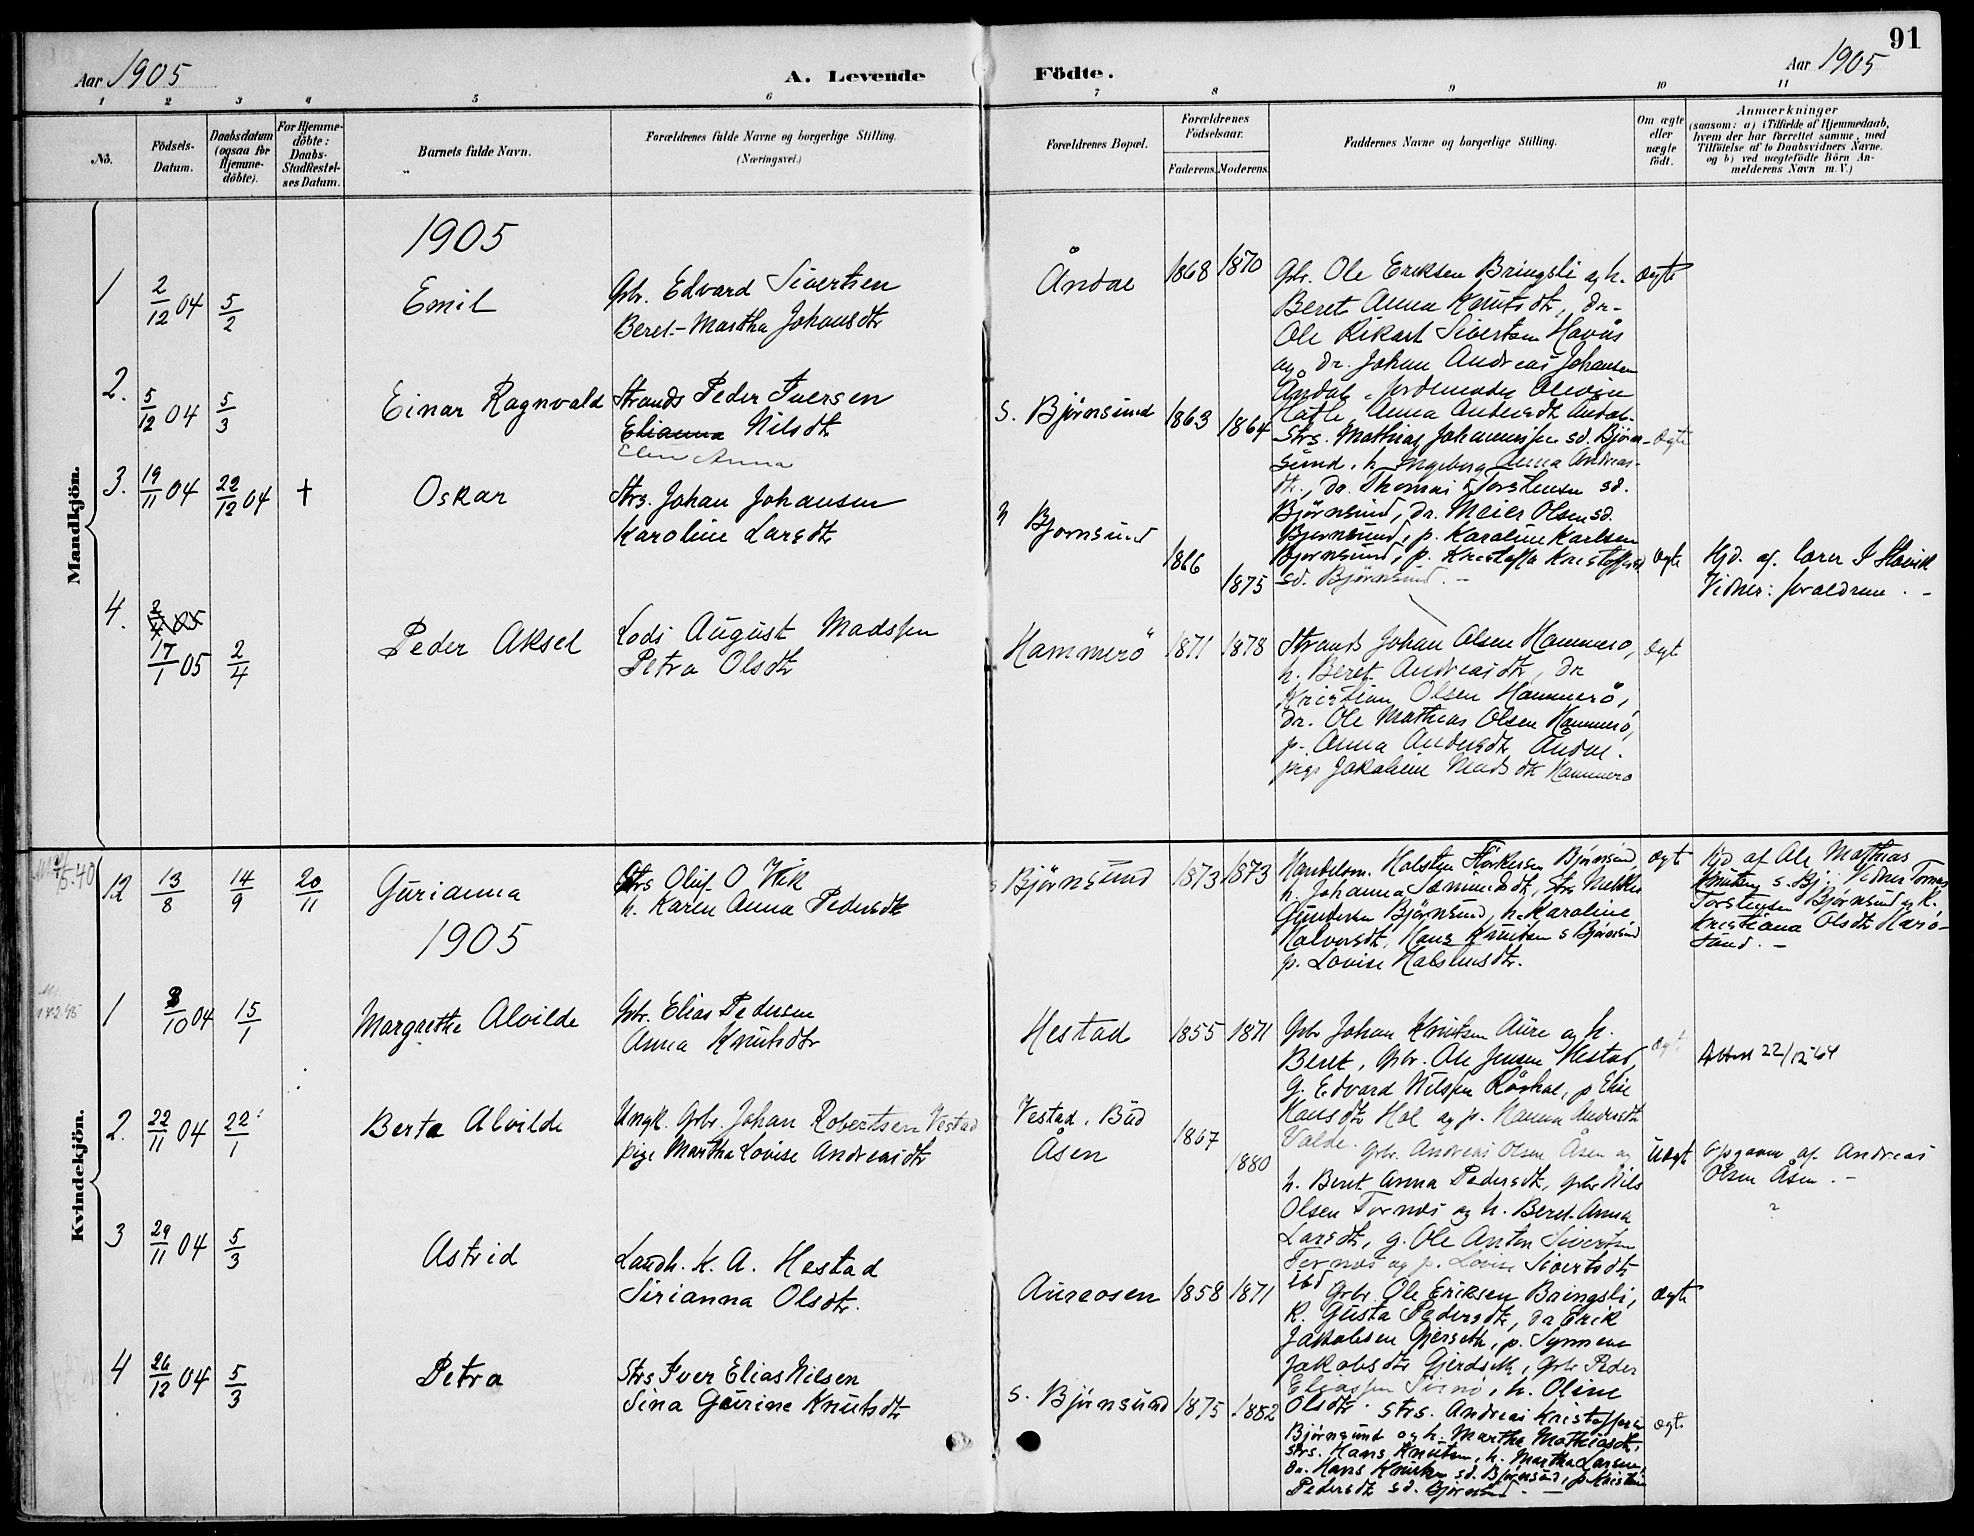 91
Aar 1905
A. Levende
Födte.
Aar 1905
1 2 3 4 5 6 7 8 9 10 11
No.
Födsels-
Datum.
Daabsdatum
(ogsaa for
Hjemme-
döbte).
For Hjemme-
döbte:
Daabs-
Stadfestel-
ses Datum.
Barnets fulde Navn.
Forældrenes fulde Navne og borgerlige Stilling.
(Næringsvei.)
Forældrenes Bopæl.
Forældrenes
Födselsaar.
Faderens.
Moderens.
Faddernes Navne og borgerlige Stilling.
Om ægte
eller
uægte
födt.
Anmærkninger
(saasom: a) i Tilfælde af Hjemmedaab,
hvem der har forrettet samme, med
Tilföielse af to Daabsvidners Navne.
og b) ved uægtefödte Börn An-
melderens Navn m. V.)
Mandkjön.
1905
1
2/12 04
5/2
Emil
Gbr. Edvard Sivertsen
Beret-Martha Johansdtr
Åndal
1868
1870
Gbr. Ole Eriksen Bringsli og h.
Beret Anna Knutsdtr, dr.
Ole Rikart Sivertsen Havås
og dr. Johan Andreas Johansen
Åndal, jordemoder Olevine
Hatle, Anna Andersdtr Andal
ægte
2.
5/12 04
5/3
Einar Ragnvald
Strands Peder Iversen
Elianna Nilsdtr
Elen Anna
S. Björnsund
1863
1864
Strs. Mathias Johannessen sd. Björn-
sund, h. Ingeborg Anna Andreas-
dtr., dr. Thomas Torstensen sd.
Björnsund, dr. Meier Olsen sd.
Bjørnsund, p. Karoline Karlsen
Bjørnsund, p. Kristoffa Kristoffersd
sd. Björnsund. -
ægte
3.
19/11 04
22/12 04
+
Oskar
Strs. Johan Johansen
Karoline Larsdtr
n Bjornsund
1866
1875
ægte
Hjd. af lærer J Slavik
Vidner: forældrene. -
4.
17/1 05
2/4
Peder Aksel
Lods August Madssen
Petra Olsdtr
Hammerö
1871
1878
Strands Johan Olsen Hammerö,
h. Beret Andreasdtr, dr
Kristian Olsen Hammerö,
dr. Ole Mathias Olsen Hammerö,
p. Anna Andersdtr Åndal.
pige Jakobine Madsdtr Hammerö
ægt
Kvindekjön.
12
13/8
14/9
20/11
Gurianna
Strs Oluf O Vik
h. Karen Anna Pedersdtr
s Björnsund
1873
1873
Handelsm. Halsten Björnsund
h. Johanna Sæmundsdtr, Strs Mekkel
Gundersen Björnsund, h. Karoline
Halvorsdtr, Hans Knutsen s Björnsund
p. Lovise Halstensdtr.
ægt
Hjd af Ole Mathias
Knutsen s. Bj. Vidner Tomas
Torstensen Björnsund og K.
Kristiana Olsdtr Harö-
sund. -
1905
1
10 04
15/1
Margrethe Alvilde
Gbr. Elias Pedersen
Anna Knutsdtr
Hestad
1855
1871
Gbr Johan Knutsen Aure og h.
Beret, Gbr. Ole Jensen Hestad,
G. Edvard Nilssen Röshol, p Elise
Hansdtr Hol og p. Hanna Andersdtr
Valde.
ægt.
Attest 22/12 64
2.
22/11 04
22/1
Berta Alvilde
Ungk. Gbr. Johan Robertsen Vestad
pige Martha Lovise Andreasdtr
Vestad. Bud
Åsen
1867
1880
Gbr. Andreas Olsen Åsen og
h. Beret Anna Pedersdtr, Gbr Nils
Olsen Tornes og h. Beret-Anna
Larsdtr, g. Ole Anton Sivertsen
Tornes og p. Lovise Sivertsdtr
ibd
Uægt
Opgaven af Andreas
Olsen Åsen. -
3
29/11 04
5/3
Astrid
Landh. K. A. Hestad
Sirianna Olsdtr.
Aureosen
1858
1871
Gbr Ole Eriksen Bringsli,
K. Gusta Pedersdtr, dr Erik
Jakobsen Gjerseth, p. Synnene
Jakobsdtr Gjerdseth, Gbr Peder
Eliassen, h. Oline
Olsdtr.
ægte
4
26/12 04
5/3
Petra
Strs Iver Elias Nilsen
Sina Gurine Knutsdtr
S. Björnsund
1875
1882
Strs. Andreas Kristoffersen
Björnsund og h. Martha Mathiasdtr,
Strs. Hans Knutsen, h. Martha Larsen,
dr. Hans Knutsen sd. Björnsund, p. Kristine
Pedersdtr sd. Björnsund. -
ægt.